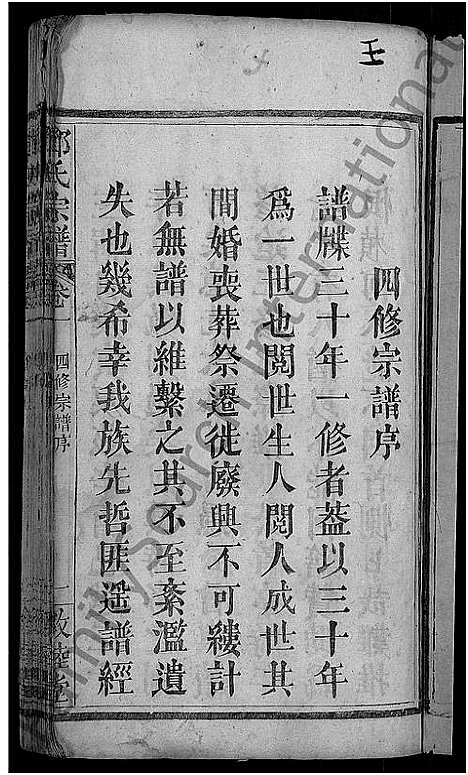 王
四修宗譜序
譜牒三十年一修者葢以三十年
爲一世也閱世生人閱人成世其
間婚喪葬祭遷徙廢興不可縷計
若無譜以維繫之其不至紊濫遺
失也幾希幸我族先哲匪遥譜經
氏宗譜
四修宗譜序
敦睦堂